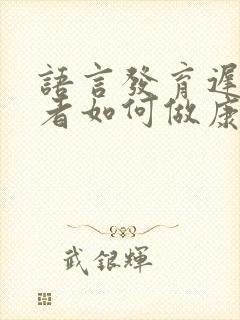 語言發育遲
者如何做康
武銀輝